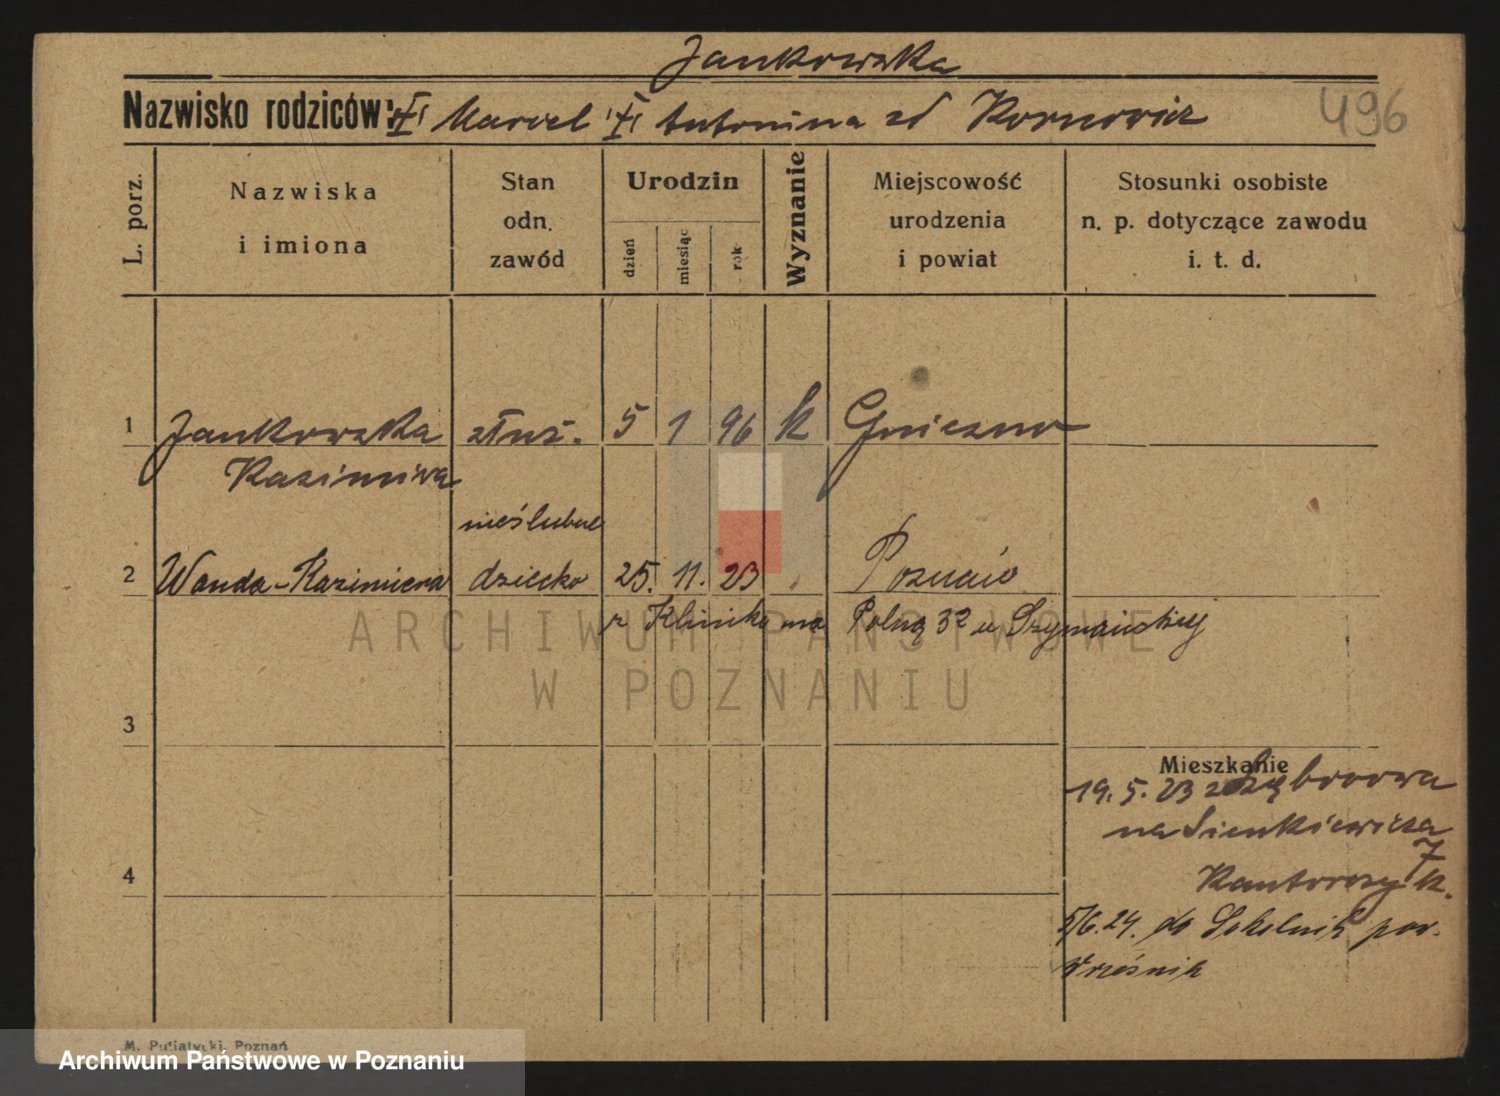 Jankowska
Nazwisko rodziców: Marcel Antonina zd
496
L. porz.
Nazwiska
i imiona
Stan
odn.
zawód
Urodzin
dzień
miesiąc
rok
Wyznanie
Miejscowość
urodzenia
i powiat
Stosunki osobiste
n. p. dotyczące zawodu
i. t. d.
1 Jankowska służ. 5 1 96 k Gniezno
Kazimiera
nieślubne
2 Wanda-Kazimiera dziecko 25. 11. 23 Poznań
Klinika Polna 32 u Szymańskiej
ARCHIWUM PAŃSTWOWE
W POZNANIU
3
Mieszkanie
19. 5. 23
na Sienkiewicza
7
4
5/6.24. do Sokolnik pow.
M. Putiatycki, Poznań
Archiwum Państwowe w Poznaniu